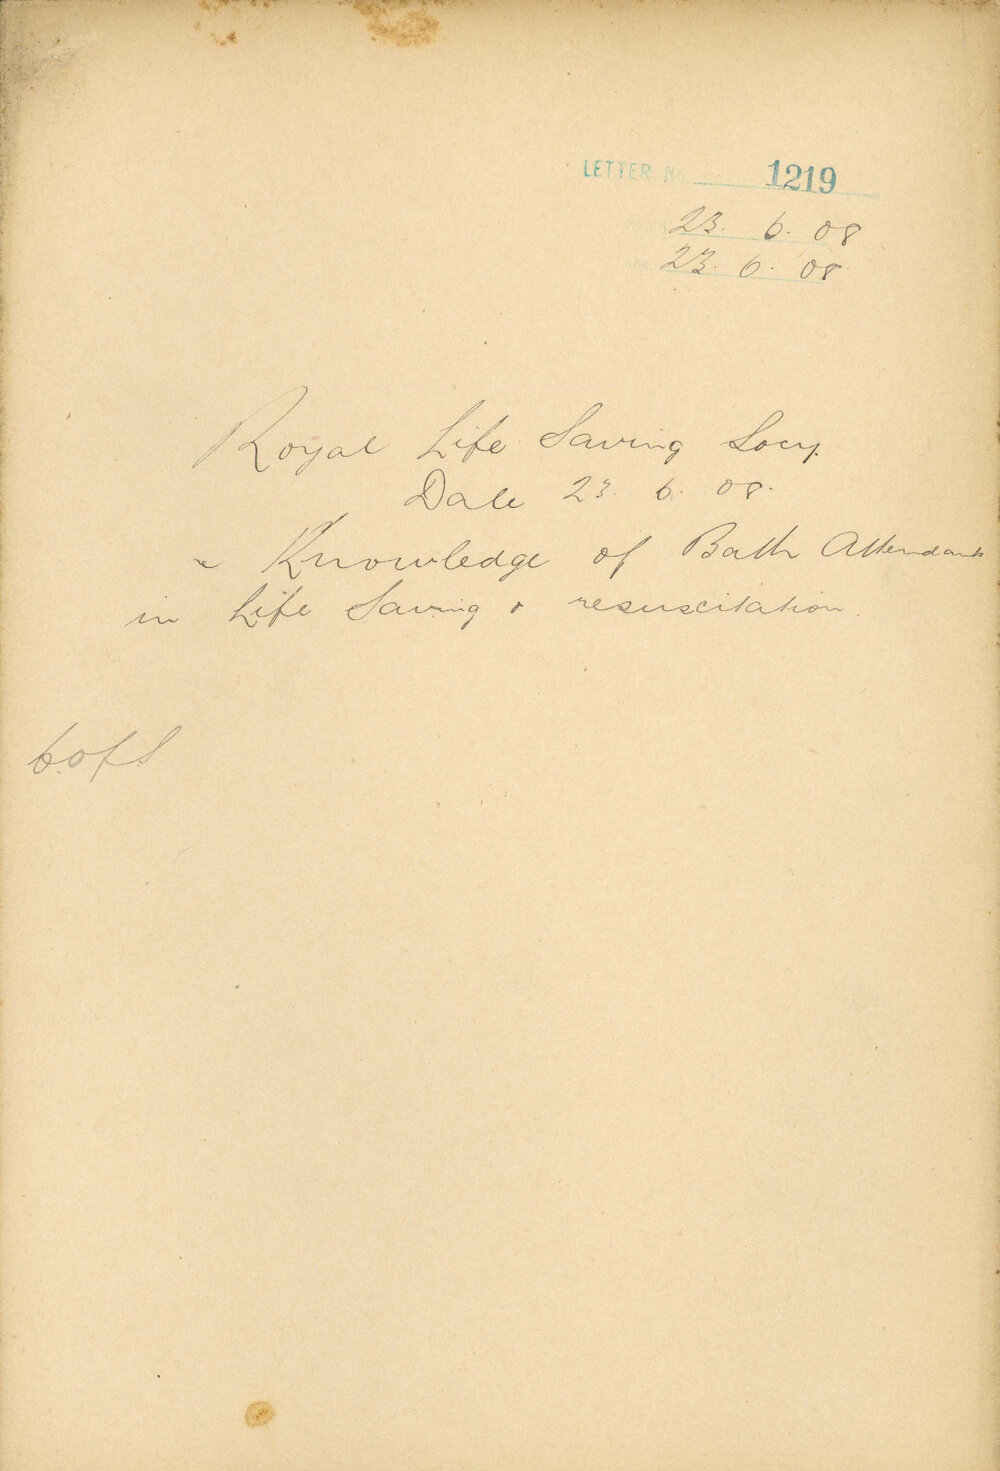 LETTER No. 1219
23. 6. 08
23. 6. 08
Royal Life Saving Socy.
Date 23. 6. 08.
re Knowledge of Bath Attendants
in Life Saving & resuscitation.